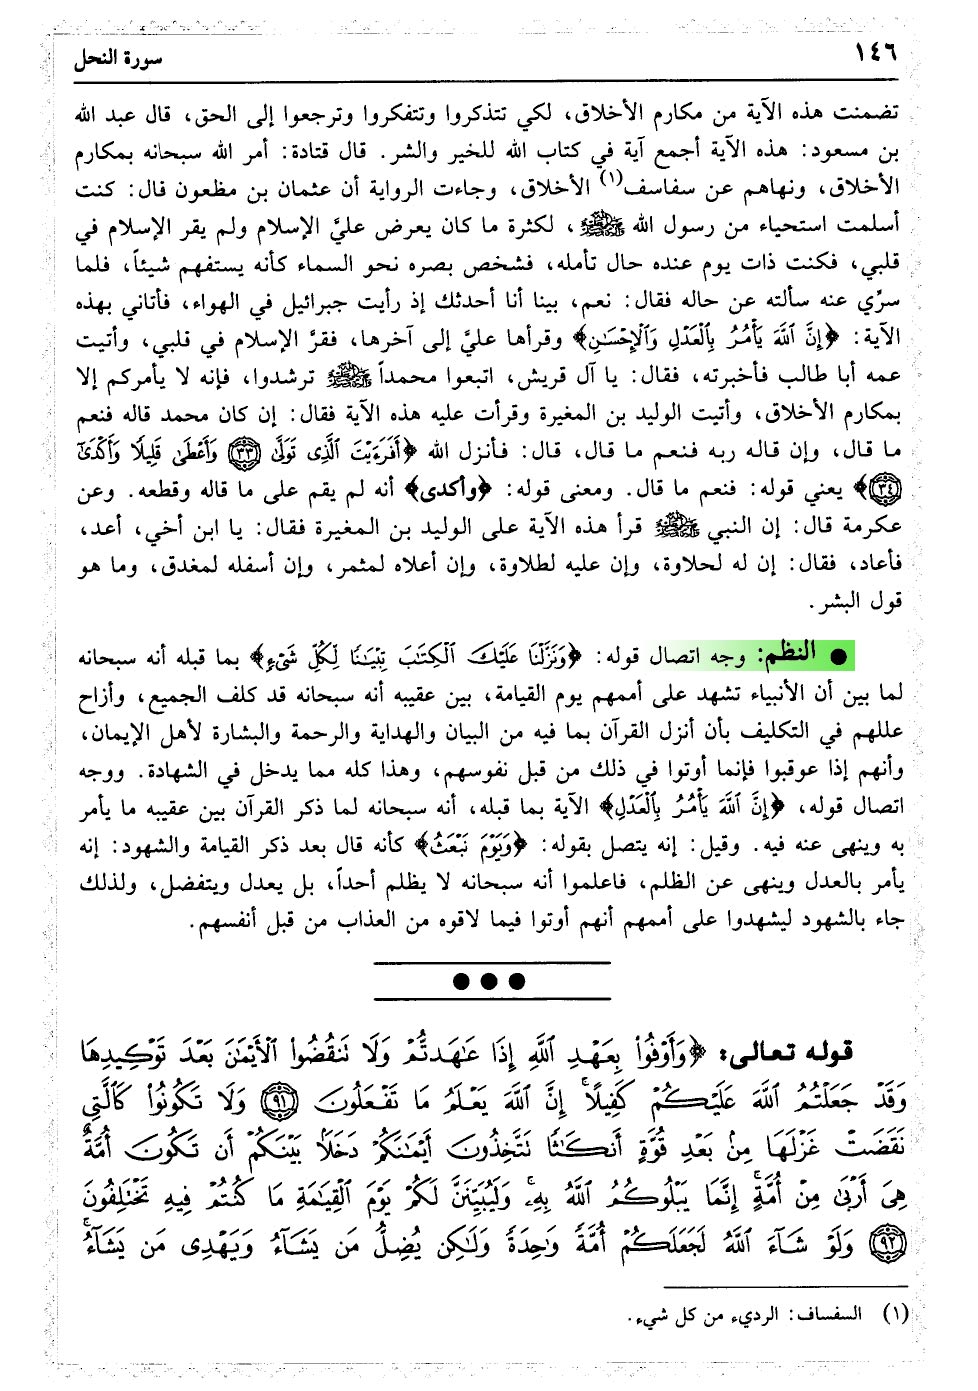 ١٤٦ سورة النحل
تضمنت هذه الآية من مكارم الأخلاق، لكي تتذكروا وتتفكروا وترجعوا إلى الحق، قال عبد الله
بن مسعود: هذه الآية أجمع آية في كتاب الله للخير والشر. قال قتادة: أمر الله سبحانه بمكارم
الأخلاق، ونهاهم عن سفاسف(١) الأخلاق، وجاءت الرواية أن عثمان بن مظعون قال: كنت
أسلمت استحياء من رسول الله ﷺ، لكثرة ما كان يعرض عليَّ الإسلام ولم يقر الإسلام في
قلبي، فكنت ذات يوم عنده حال تأمله، فشخص بصره نحو السماء كأنه يستفهم شيئاً، فلما
سرِّي عنه سألته عن حاله فقال: نعم، بينا أنا أحدثك إذ رأيت جبرائيل في الهواء، فأتاني بهذه
الآية: ﴿إِنَّ ٱللَّهَ يَأْمُرُ بِٱلْعَدْلِ وَٱلْإِحْسَٰنِ﴾ وقرأها عليَّ إلى آخرها، فقرَّ الإسلام في قلبي، وأتيت
عمه أبا طالب فأخبرته، فقال: يا آل قريش، اتبعوا محمداً ﷺ ترشدوا، فإنه لا يأمركم إلا
بمكارم الأخلاق، وأتيت الوليد بن المغيرة وقرأت عليه هذه الآية فقال: إن كان محمد قاله فنعم
ما قال، وإن قاله ربه فنعم ما قال، قال: فأنزل الله ﴿أَفَرَءَيْتَ ٱلَّذِى تَوَلَّىٰ ٣٣ وَأَعْطَىٰ قَلِيلًا وَأَكْدَىٰٓ
٣٤﴾ يعني قوله: فنعم ما قال. ومعنى قوله: ﴿وأكدى﴾ أنه لم يقم على ما قاله وقطعه. وعن
عكرمة قال: إن النبي ﷺ قرأ هذه الآية على الوليد بن المغيرة فقال: يا ابن أخي، أعد،
فأعاد، فقال: إن له لحلاوة، وإن عليه لطلاوة، وإن أعلاه لمثمر، وإن أسفله لمغدق، وما هو
قول البشر.
● النظم: وجه اتصال قوله: ﴿وَنَزَّلْنَا عَلَيْكَ ٱلْكِتَٰبَ تِبْيَٰنًا لِّكُلِّ شَىْءٍ﴾ بما قبله أنه سبحانه
لما بين أن الأنبياء تشهد على أممهم يوم القيامة، بين عقيبه أنه سبحانه قد كلف الجميع، وأزاح
عللهم في التكليف بأن أنزل القرآن بما فيه من البيان والهداية والرحمة والبشارة لأهل الإيمان،
وأنهم إذا عوقبوا فإنما أوتوا في ذلك من قبل نفوسهم، وهذا كله مما يدخل في الشهادة. ووجه
اتصال قوله، ﴿إِنَّ ٱللَّهَ يَأْمُرُ بِٱلْعَدْلِ﴾ الآية بما قبله، أنه سبحانه لما ذكر القرآن بين عقيبه ما يأمر
به وينهى عنه فيه. وقيل: إنه يتصل بقوله: ﴿وَيَوْمَ نَبْعَثُ﴾ كأنه قال بعد ذكر القيامة والشهود: إنه
يأمر بالعدل وينهى عن الظلم، فاعلموا أنه سبحانه لا يظلم أحداً، بل يعدل ويتفضل، ولذلك
جاء بالشهود ليشهدوا على أممهم أنهم أوتوا فيما لاقوه من العذاب من قبل أنفسهم.
● ● ●
قوله تعالى: ﴿وَأَوْفُوا۟ بِعَهْدِ ٱللَّهِ إِذَا عَٰهَدتُّمْ وَلَا تَنقُضُوا۟ ٱلْأَيْمَٰنَ بَعْدَ تَوْكِيدِهَا
وَقَدْ جَعَلْتُمُ ٱللَّهَ عَلَيْكُمْ كَفِيلًا ۚ إِنَّ ٱللَّهَ يَعْلَمُ مَا تَفْعَلُونَ ٩١ وَلَا تَكُونُوا۟ كَٱلَّتِى
نَقَضَتْ غَزْلَهَا مِنۢ بَعْدِ قُوَّةٍ أَنكَٰثًا تَتَّخِذُونَ أَيْمَٰنَكُمْ دَخَلًۢا بَيْنَكُمْ أَن تَكُونَ أُمَّةٌ
هِىَ أَرْبَىٰ مِنْ أُمَّةٍ ۚ إِنَّمَا يَبْلُوكُمُ ٱللَّهُ بِهِۦ ۚ وَلَيُبَيِّنَنَّ لَكُمْ يَوْمَ ٱلْقِيَٰمَةِ مَا كُنتُمْ فِيهِ تَخْتَلِفُونَ
٩٢ وَلَوْ شَآءَ ٱللَّهُ لَجَعَلَكُمْ أُمَّةً وَٰحِدَةً وَلَٰكِن يُضِلُّ مَن يَشَآءُ وَيَهْدِى مَن يَشَآءُ ۚ
(١) السفساف: الرديء من كل شيء.